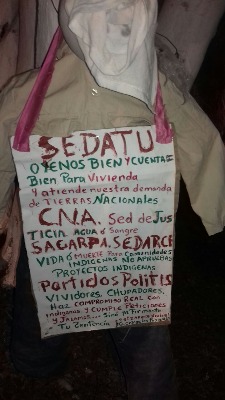 SEDATU
OYENOS BIEN Y CUENTA
Bien Para Vivienda
y atiende nuestra demanda
de TIERRAS NACIONALES
C.N.A. Sed de Jus
TICIA AGUA ó Sangre
SAGARPA. SEDARCH
VIDA ó MUERTE Para Comunidades
INDIGENAS NO APARIENCIAS
PROYECTOS INDIGENAS
Partidos Politis
VIVIDORES, CHUPADORES,
Haz COMPROMISO REAL con
indigenas y CUMPLE Peticiones
y
Tu